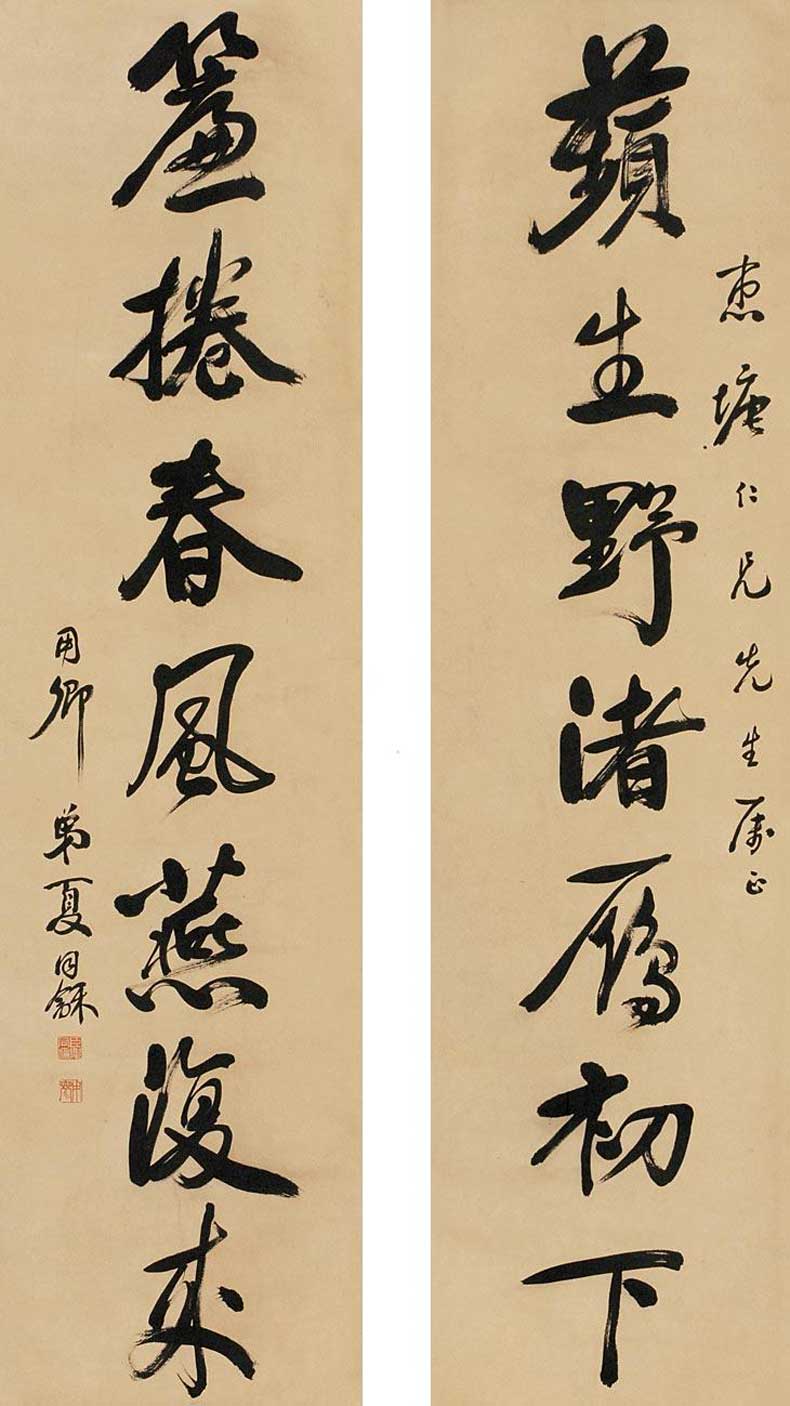 蘋生野渚雁初下
惠塘仁兄先生屬正
簾捲春風燕復來
用卿弟夏同龢